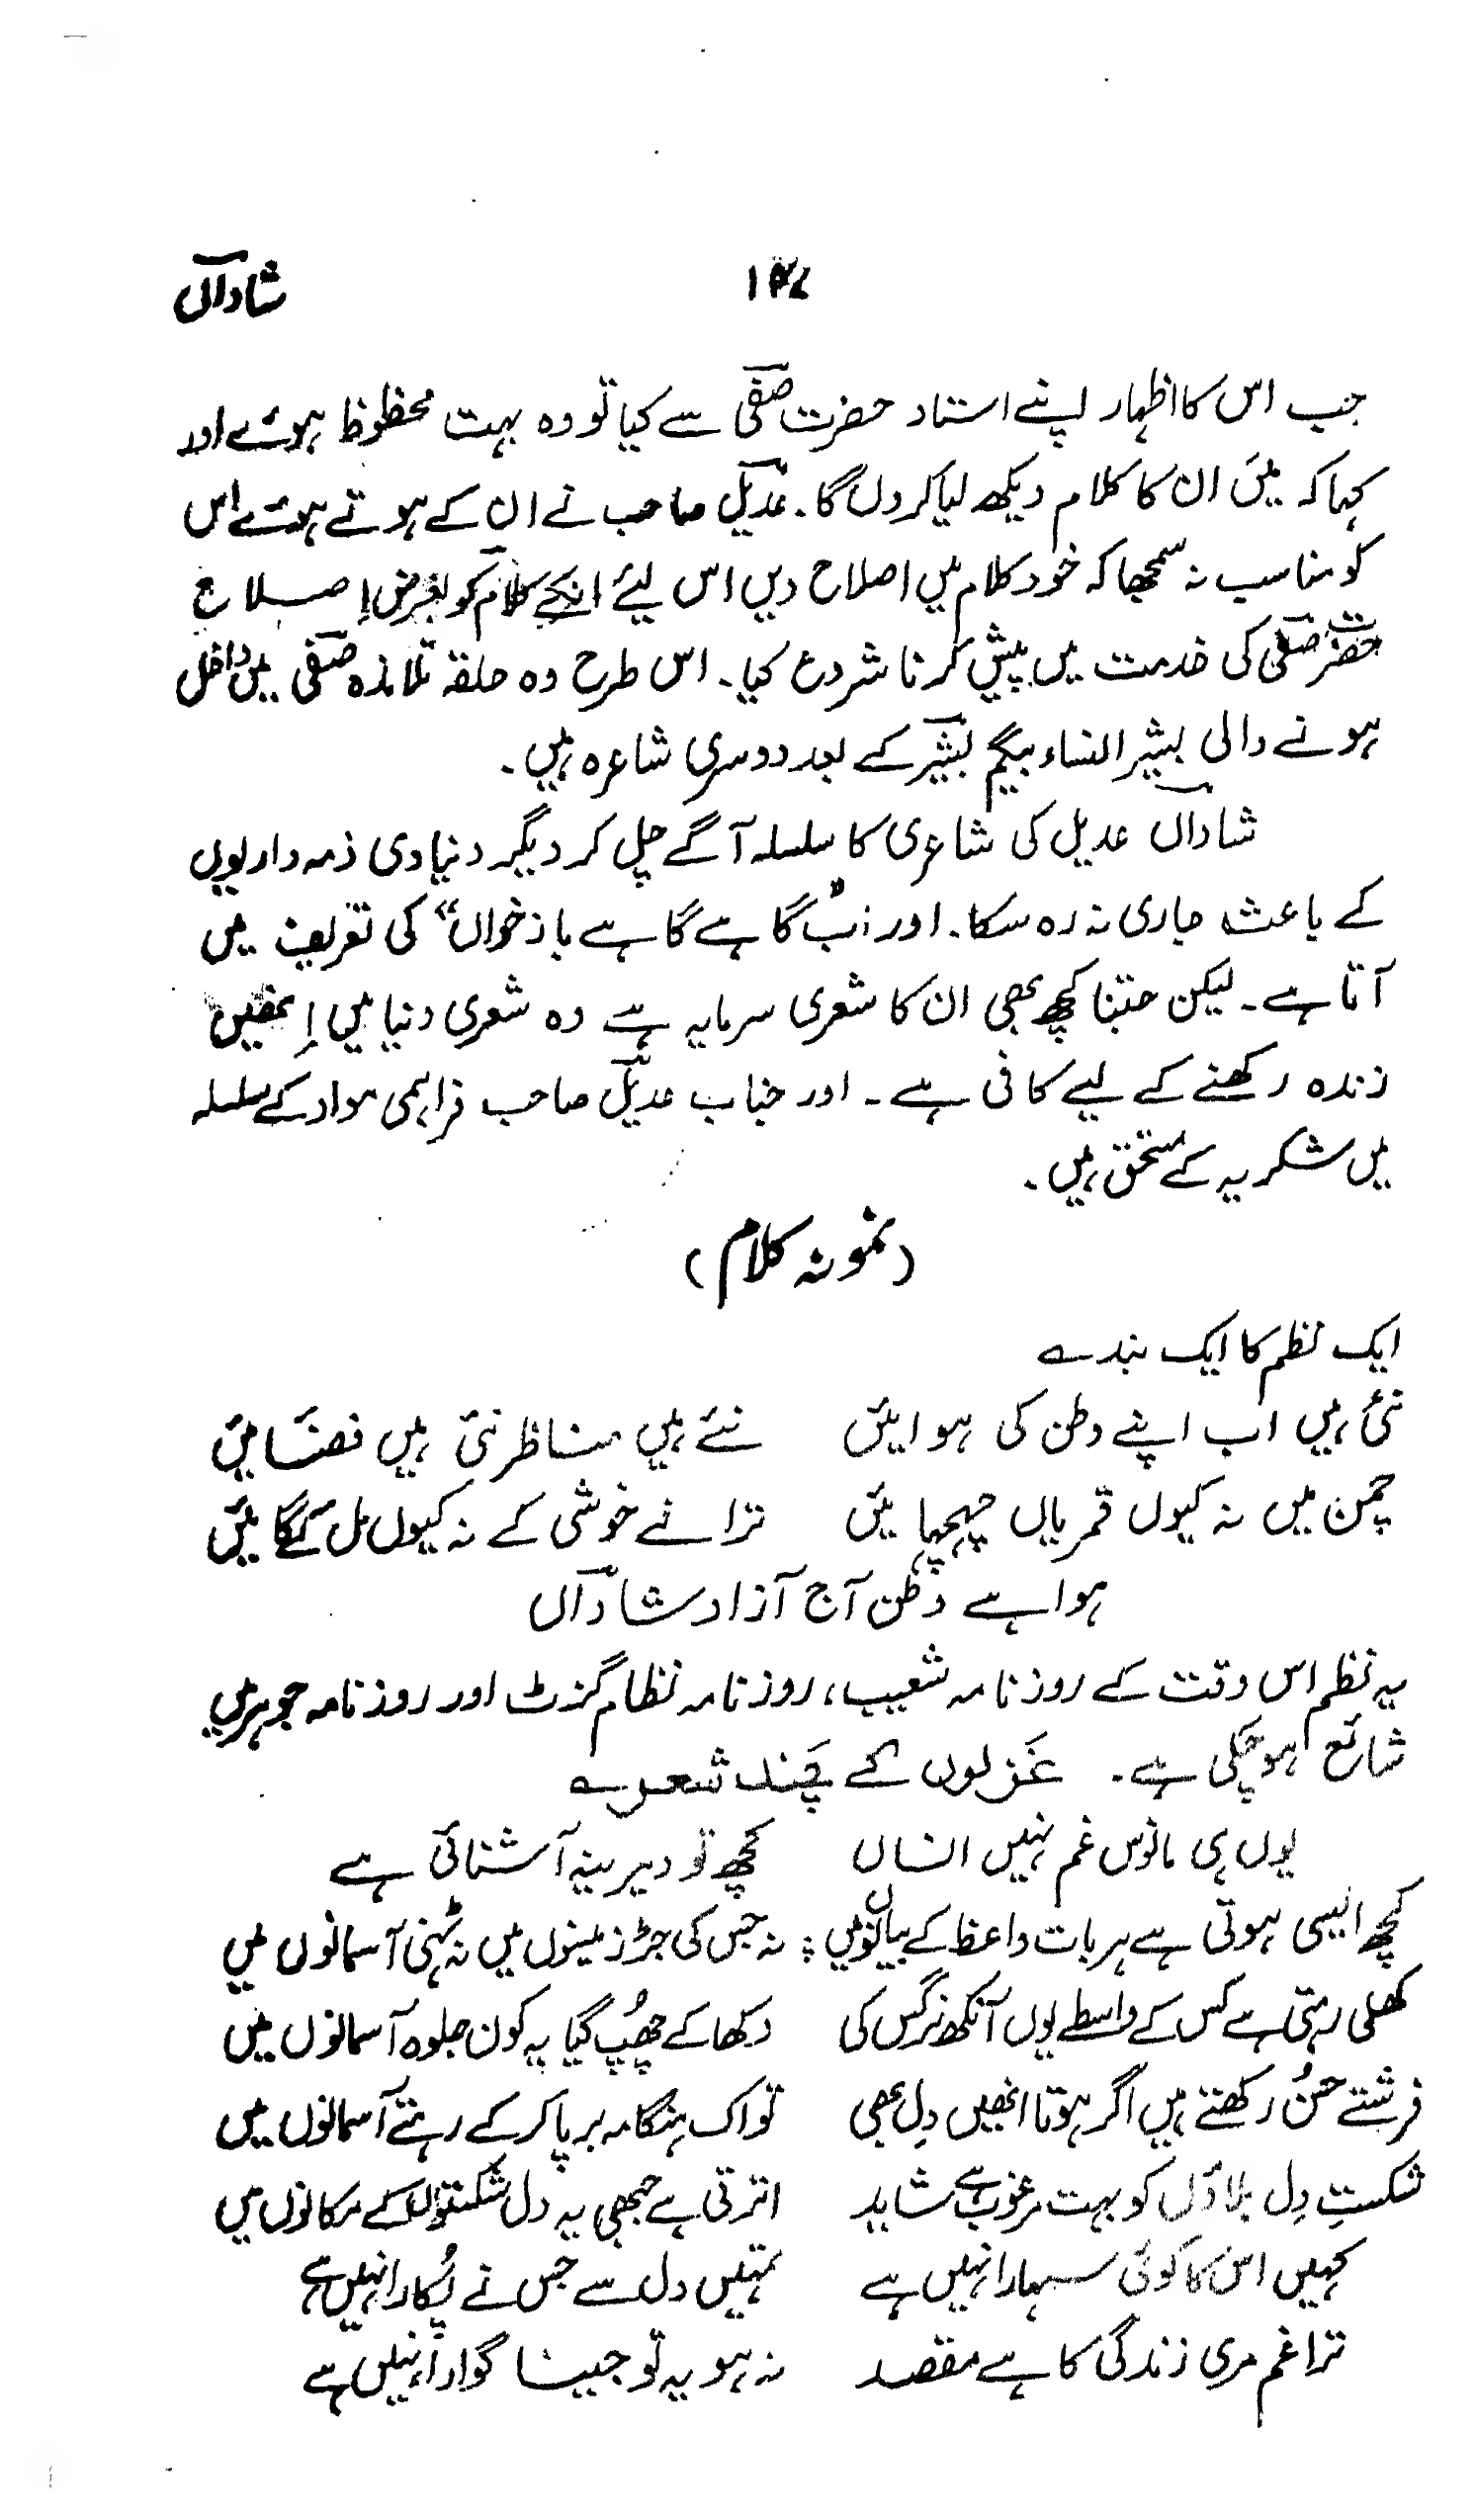 شاداںؔ
جب اس کا اظہار اپنے استاد حضرت صفیؔ سے کیا تو وہ بہت محظوظ ہوئے اور
کہا کہ میں ان کا کلام دیکھ لیا کروں گا۔ عدیلؔ صاحب نے ان کے ہوتے ہوئے اس
کو مناسب نہ سمجھا کہ خود کلام میں اصلاح دیں اس لیئے انکے کلام کو بغرض اصلاح
حضرت صفیؔ کی خدمت میں پیش کرنا شروع کیا۔ اس طرح وہ حلقہ تلامذہ صفیؔ میں داخل
ہونے والی بشیر النساء بیگم بشیرؔ کے بعد دوسری شاعرہ ہیں۔
شاداںؔ عدیل کی شاعری کا سلسلہ آگے چل کر دیگر دنیاوی ذمہ داریوں
کے باعث جاری نہ رہ سکا۔ اور اب "گاہے گاہے باز خواں" کی تعریف میں
آتا ہے۔ لیکن جتنا کچھ بھی ان کا شعری سرمایہ ہے وہ شعری دنیا میں اِنھیں
زندہ رکھنے کے لیے کافی ہے۔ اور جناب عدیلؔ صاحب فراہمی مواد کے سلسلہ
میں شکریہ کے مستحق ہیں۔
(نمونہ کلام)
ایک نظم کا ایک بند ے
نئی ہیں اب اپنے وطن کی ہوائیں نئے ہیں مناظر نئی ہیں فضائیں
چمن میں نہ کیوں قمریاں چہچہائیں ترانے خوشی کے نہ کیوں مل کے گائیں
ہوا ہے وطن آج آزاد شاداںؔ
یہ نظم اس وقت کے روزنامہ شعیب، روزنامہ نظام گزٹ اور روزنامہ جوہر میں
شائع ہوچکی ہے۔ غزلوں کے چند شعر ے
یوں ہی مانوس غم نہیں انساں کچھ تو دیرینہ آشنائی ہے
کچھ ایسی ہوتی ہے ہر بات واعظ کے بیانوں میں ؛ نہ جس کی جڑ زمینوں میں نہ ٹہنی آسمانوں میں
کھلی رہتی ہے کس کے واسطے یوں آنکھ نرگس کی دکھا کے چھُپ گیا یہ کون جلوہ آسمانوں میں
فرشتے حسُن رکھتے ہیں اگر ہوتا انھیں دِل بھی تو اک ہنگامہ برپا کرکے رہتے آسمانوں میں
شکستِ دِل بلاؤں کو بہت مرغوب ہے شاید اترتی ہے جبھی یہ دل شکستوں کے مکانوں میں
کہیں اس کا کوئی سہارا نہیں ہے تمہیں دل سے جس نے پُکارا نہیں ہے
ترا غم مری زندگی کا ہے مقصد نہ ہو یہ تو جینا گوارا نہیں ہے